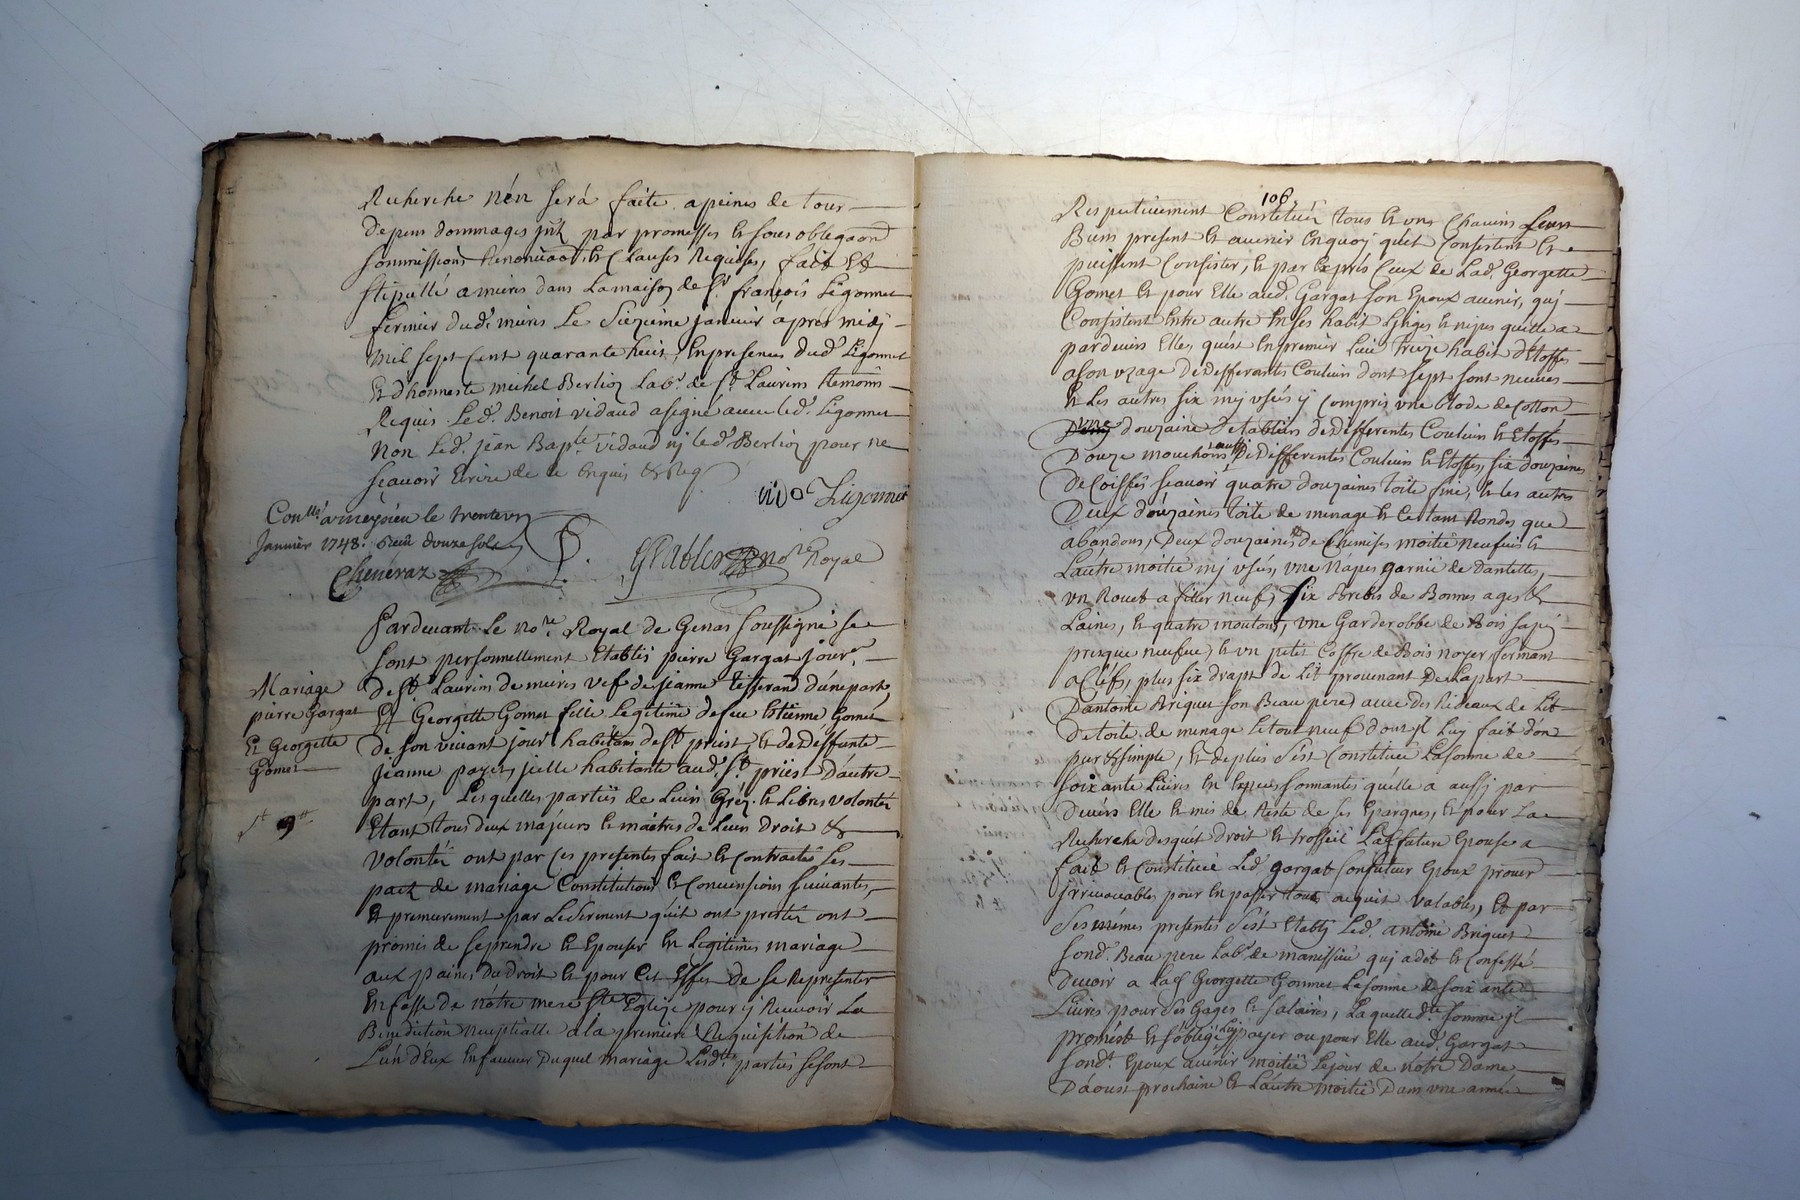 Recherche n'en sera faite a peines de tous
depens dommages jnts par promesses et sous obligaons
sommissions Renonciaons et Clauses Requises, fait et
stipullé a mieres dans La maison de Sr. françois Ligonnet
fermier dud. miers Le sizieme janvier aprés midy
mil sept Cent quarante huit, En presences dud. Ligonnet
Et d'honneste michel Berlioz Labr. de St. Laurens temoins
Requis Led. Benoit vidaud a signé avec led. Ligonnet
Non Led. jean Bapte. vidaud nj led. Berlioz pour ne
scavoir Ecrire de ce Enquis et Req
Ligonnet
Conllé a meyzieu le trente un
Janvier 1748. Reçu douze sols
Cheneraz
Nore Royal
Pardevant Le nore. Royal de Genas soussigné se
sont personnellement Etablis pierre Gargat jourer.
de St. Laurens de mieres vef de jeanne tisserand d'une part,
Et Georgette Gomet fille Legitime de feu Estienne Gomet
de son vivant jourr. habitant de St. priest, et de deffunte
jeanne payet, jcelle habitante aud. St. priest D'autre
part, Lesquelles parties de Leurs Gréz et Libres volontéz
Etant tous deux majeurs et maitres de Leurs Droit et
volontéz ont par Ces presentes fait et Contracté Les
pact de mariage Constitutions et Convensions suivantes,
Et premierement par Le Serment qu'il ont prestéz ont
promis de se prendre et Epouser En Legitimes mariage
aux paines du droit et pour Cet Effet de se Representer
En fasse de nôtre mere Ste Eglize pour ij Recevoir La
Benediction nuptialle a la premiere Requisition de
L'un d'Eux En faveur Duquel mariage Lesdttes. parties se sont
Mariage
pierre Gargat
Et Georgette
Gomet
106.
Respectivement Constitués tous et uns Chacuns Leurs
Biens present et avenir En quoy qu'il Consistent et
puissent Consister, et par Exprés Ceux de Lad. Georgette
Gomet et pour Elle aud. Gargat son Epoux avenir, quj
Consistent Entre autre En ses habit Linges et nipes quelle a
pardevers Elle, quest En premier Lieu treize habit d'Etoffe
a son uzage de differentes Couleurs dont sept sont neuves
et Les autres six mj usés ij Compris une Mode de Cotton
douzaine de tabliers de differentes Couleurs et Etoffes
Douze mouchoirs aussi de differentes Couleurs et Etoffes, six douzaines
de Coiffes scavoir quatre douzaines toile fine, et les autres
Deux douzaines toile de menage et Ce tant Rondes que
abandons, Deux douzaines de Chemises moitié neufves et
L'autre moitié mj usés, une Napes garnie de dantelles,
un Rouet a filler neuf, Six Brebis de Bonnes ages et
Laines, et quatre moutons, une Garderobbe de Bois sapj
presque neufve, et un petit Coffre de Bois noyer fermant
a Cléfs, plus six drapt de Lit provenant De La part
D'antoine Briquet son Beau pere, avec des Rideaux de Lit
De toile de menage Le tout neuf dont jl Luy fait d'on
pur et simple, Et de plus s'est Constituée La somme de
soixante Livres En Especes sonnantes quélle a aussj par
Devers Elle et mis de Reste de ses Epargnes, et pour La
Recherche desquels droit et trosseil La future Epouse a
fait et Constitué Led. Gargat son futeur Epoux procur
jrrevocables pour En passer tous acquit valables, Et par
Ses mémes presentes s'est Etably Led. antoine Briquet
sond. Beau pere Labr. de manissieu quj a dit et Confessé
Devoir a Lad. Georgette Gommet La somme de soixante
Livres pour ses Gages et salaires, Laquelle dte. somme jl
promest et s'oblige Luj payer ou pour Elle aud. Gargat
sond. Epoux avenir moitié Le jour de nôtre Dame
D'aoust prochain et L'autre moitié Dans une année